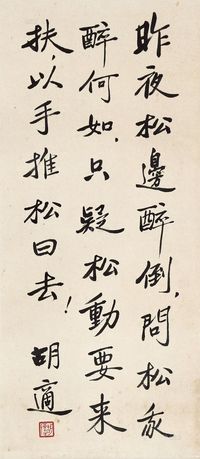 昨夜松邊醉倒，問松我
醉何如，只疑松動要来
扶，以手推松曰去！
胡適